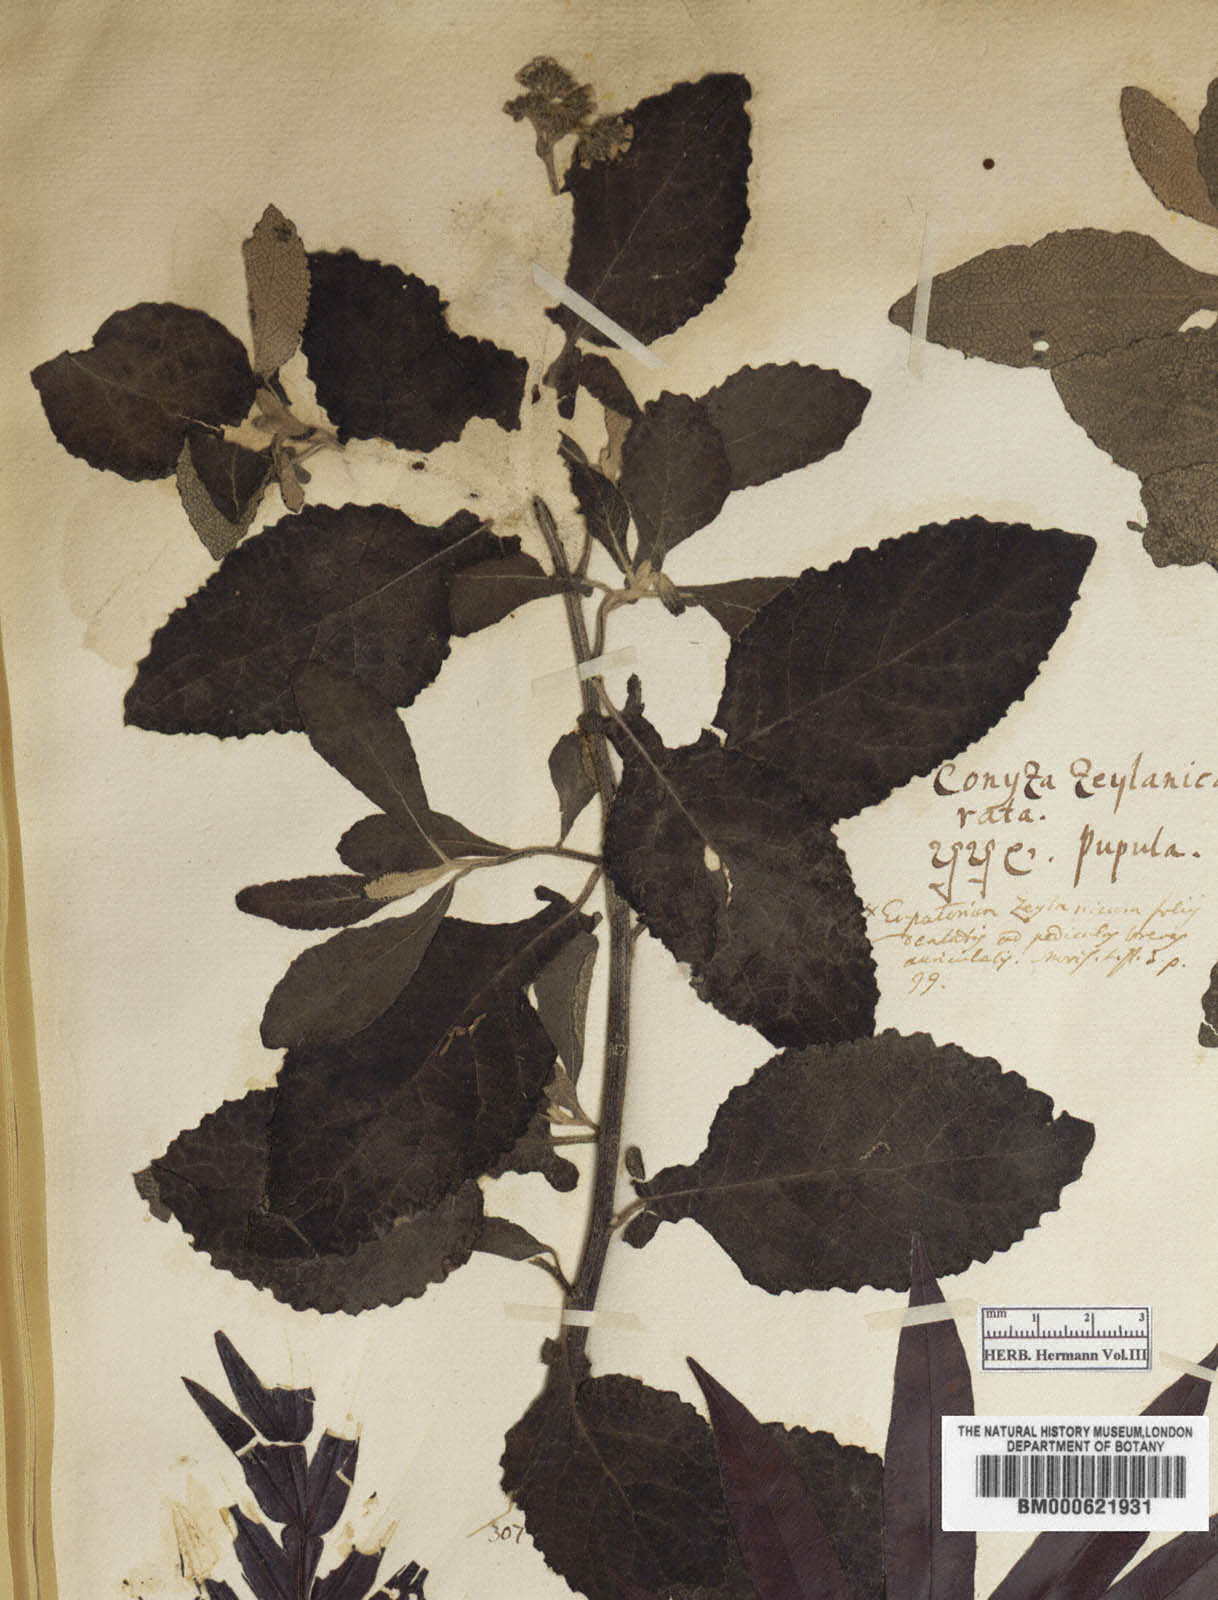 Conyza Zeylanica
rata.
පුපුල. Pupula.
* Eupatorium Zeylanicum foliis
dentatis ad pediculos breves
auriculatis. Moris. p.
99.
mm 1 2 3
HERB. Hermann Vol.III
THE NATURAL HISTORY MUSEUM,LONDON
DEPARTMENT OF BOTANY
BM000621931
307